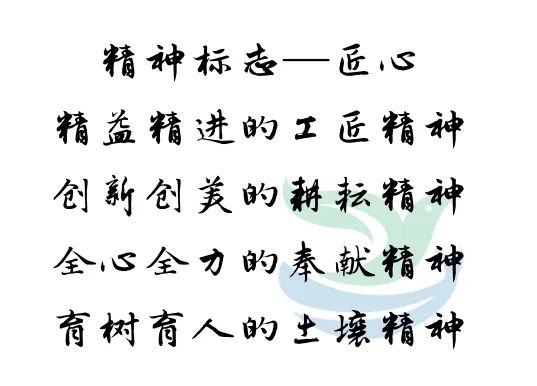 精神标志—匠心
精益精进的工匠精神
创新创美的耕耘精神
全心全力的奉献精神
育树育人的土壤精神